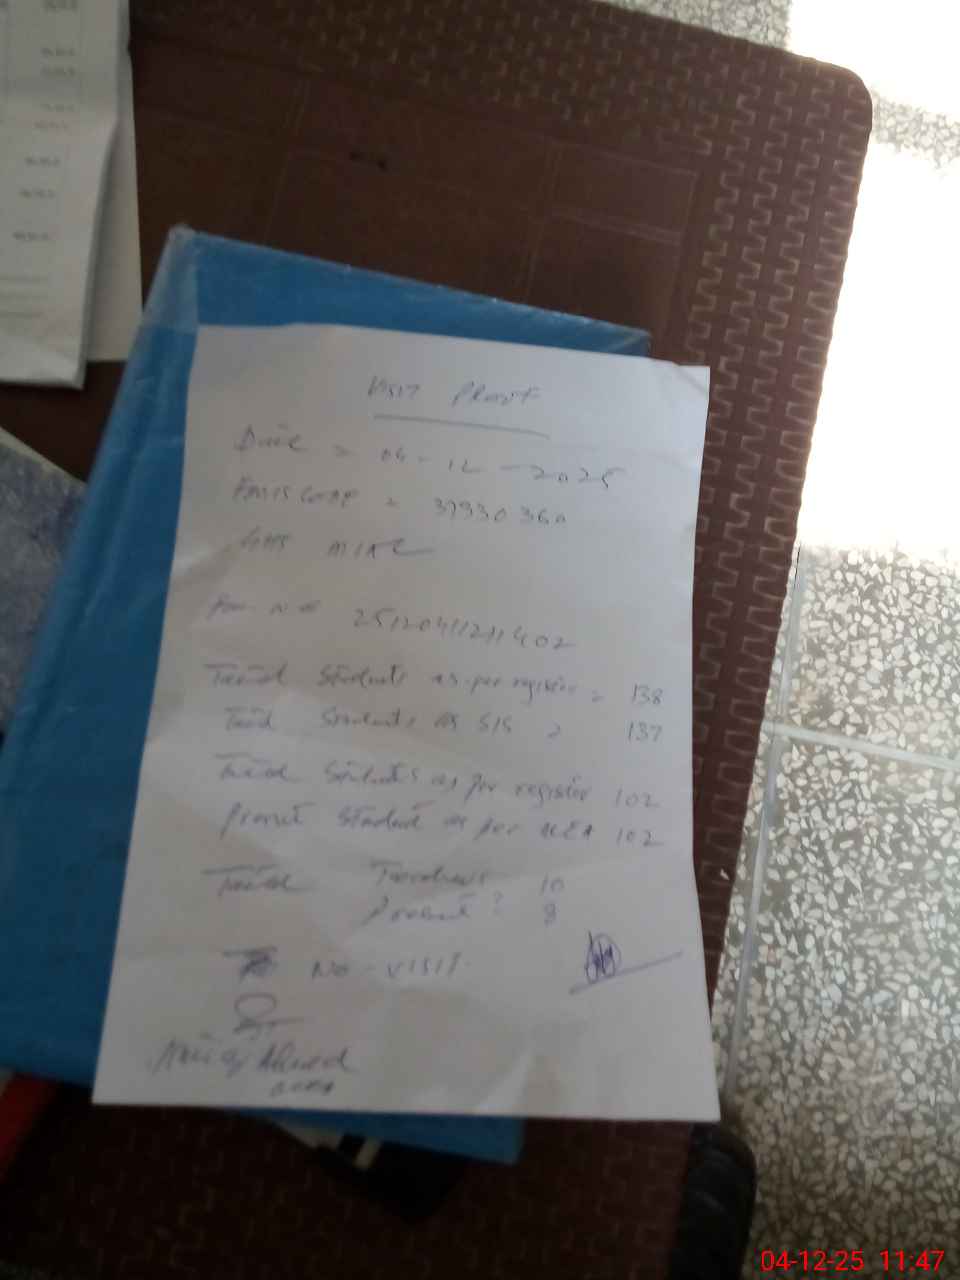 VISIT PROOF
Date = 04-12-2025
EMIS CODE = 37330360
GHS
251204112711402
Total Students as per register = 138
Total Students as SIS = 137
Total Students as per register 102
Present Student as per MEA 102
Total Teachers 10
Present: 8
No - VISIT
Ahmed
04-12-25 11:47